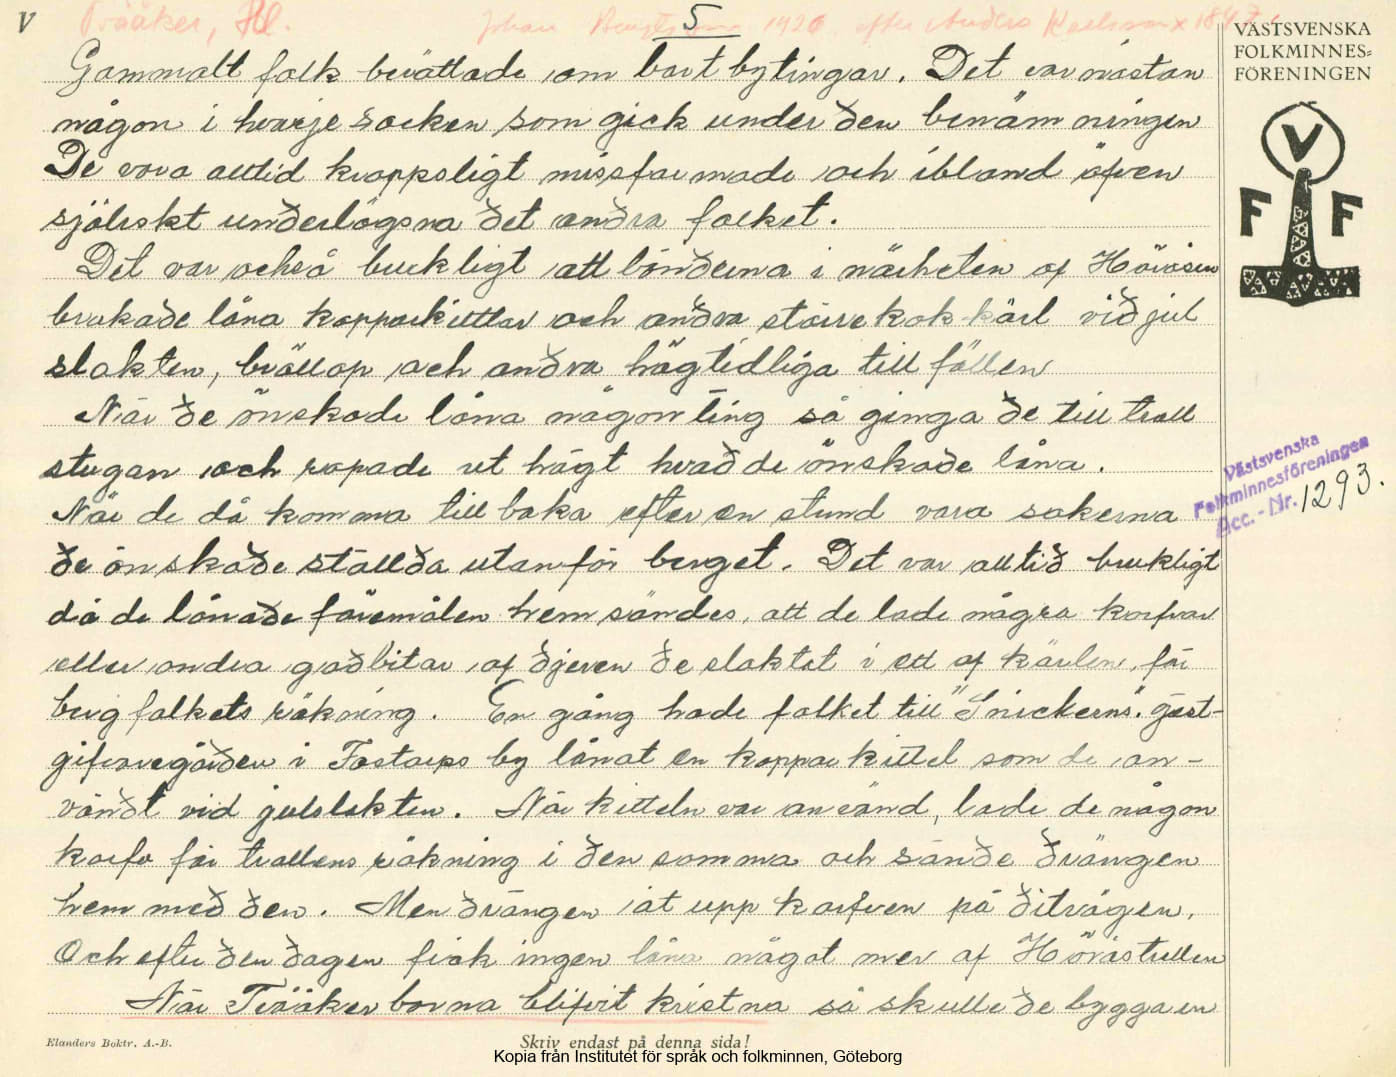 V
5
Tvååker, Hl.
Johan Bengtsson 1926 efter Anders Karlsson x 1847.
VÄSTSVENSKA
FOLKMINNES-
FÖRENINGEN
V
F F
Gammalt folk berättade om bortbytingar. Det var nästan
någon i hvarje socken som gick under den benämningen
De vora alltid kroppsligt missformade och ibland äfven
själiskt underlägsna det andra folket.
Det var också brukligt att bönderna i närheten af Höråsen
brukade låna kopparkittlar och andra större kok-kärl vid jul
slakten, bröllop och andra högtidliga tillfällen
När de önskade låna någon ting så gingo de till troll
stugan och ropade ut högt hvad de önskade låna.
När de då komma till baka efter en stund vara sakerna
de önskade ställda utanför berget. Det var alltid brukligt
då de lånade föremålen hemsändes, att de lade några korfvar
eller andra godbitar af djuren de slaktat i ett af kärlen, för
bergfolkets räkning. En gång hade folket till "Snickerns" gäst-
gifvaregården i Fastarps by lånat en kopparkittel som de an-
vändt vid julslakten. När kitteln var använd, lade de någon
korfv för trollens räkning i den samma och sände drängen
hem med den. Men drängen åt upp korfven på ditvägen.
Och efter den dagen fick ingen låna något mer af Höråstrollen
När Tvååkerborna blifvit kristna så skulle de bygga en
Västsvenska
Folkminnesföreningen
Acc. - Nr. 1293.
Elanders Boktr. A.-B.
Skriv endast på denna sida!
Kopia från Institutet för språk och folkminnen, Göteborg